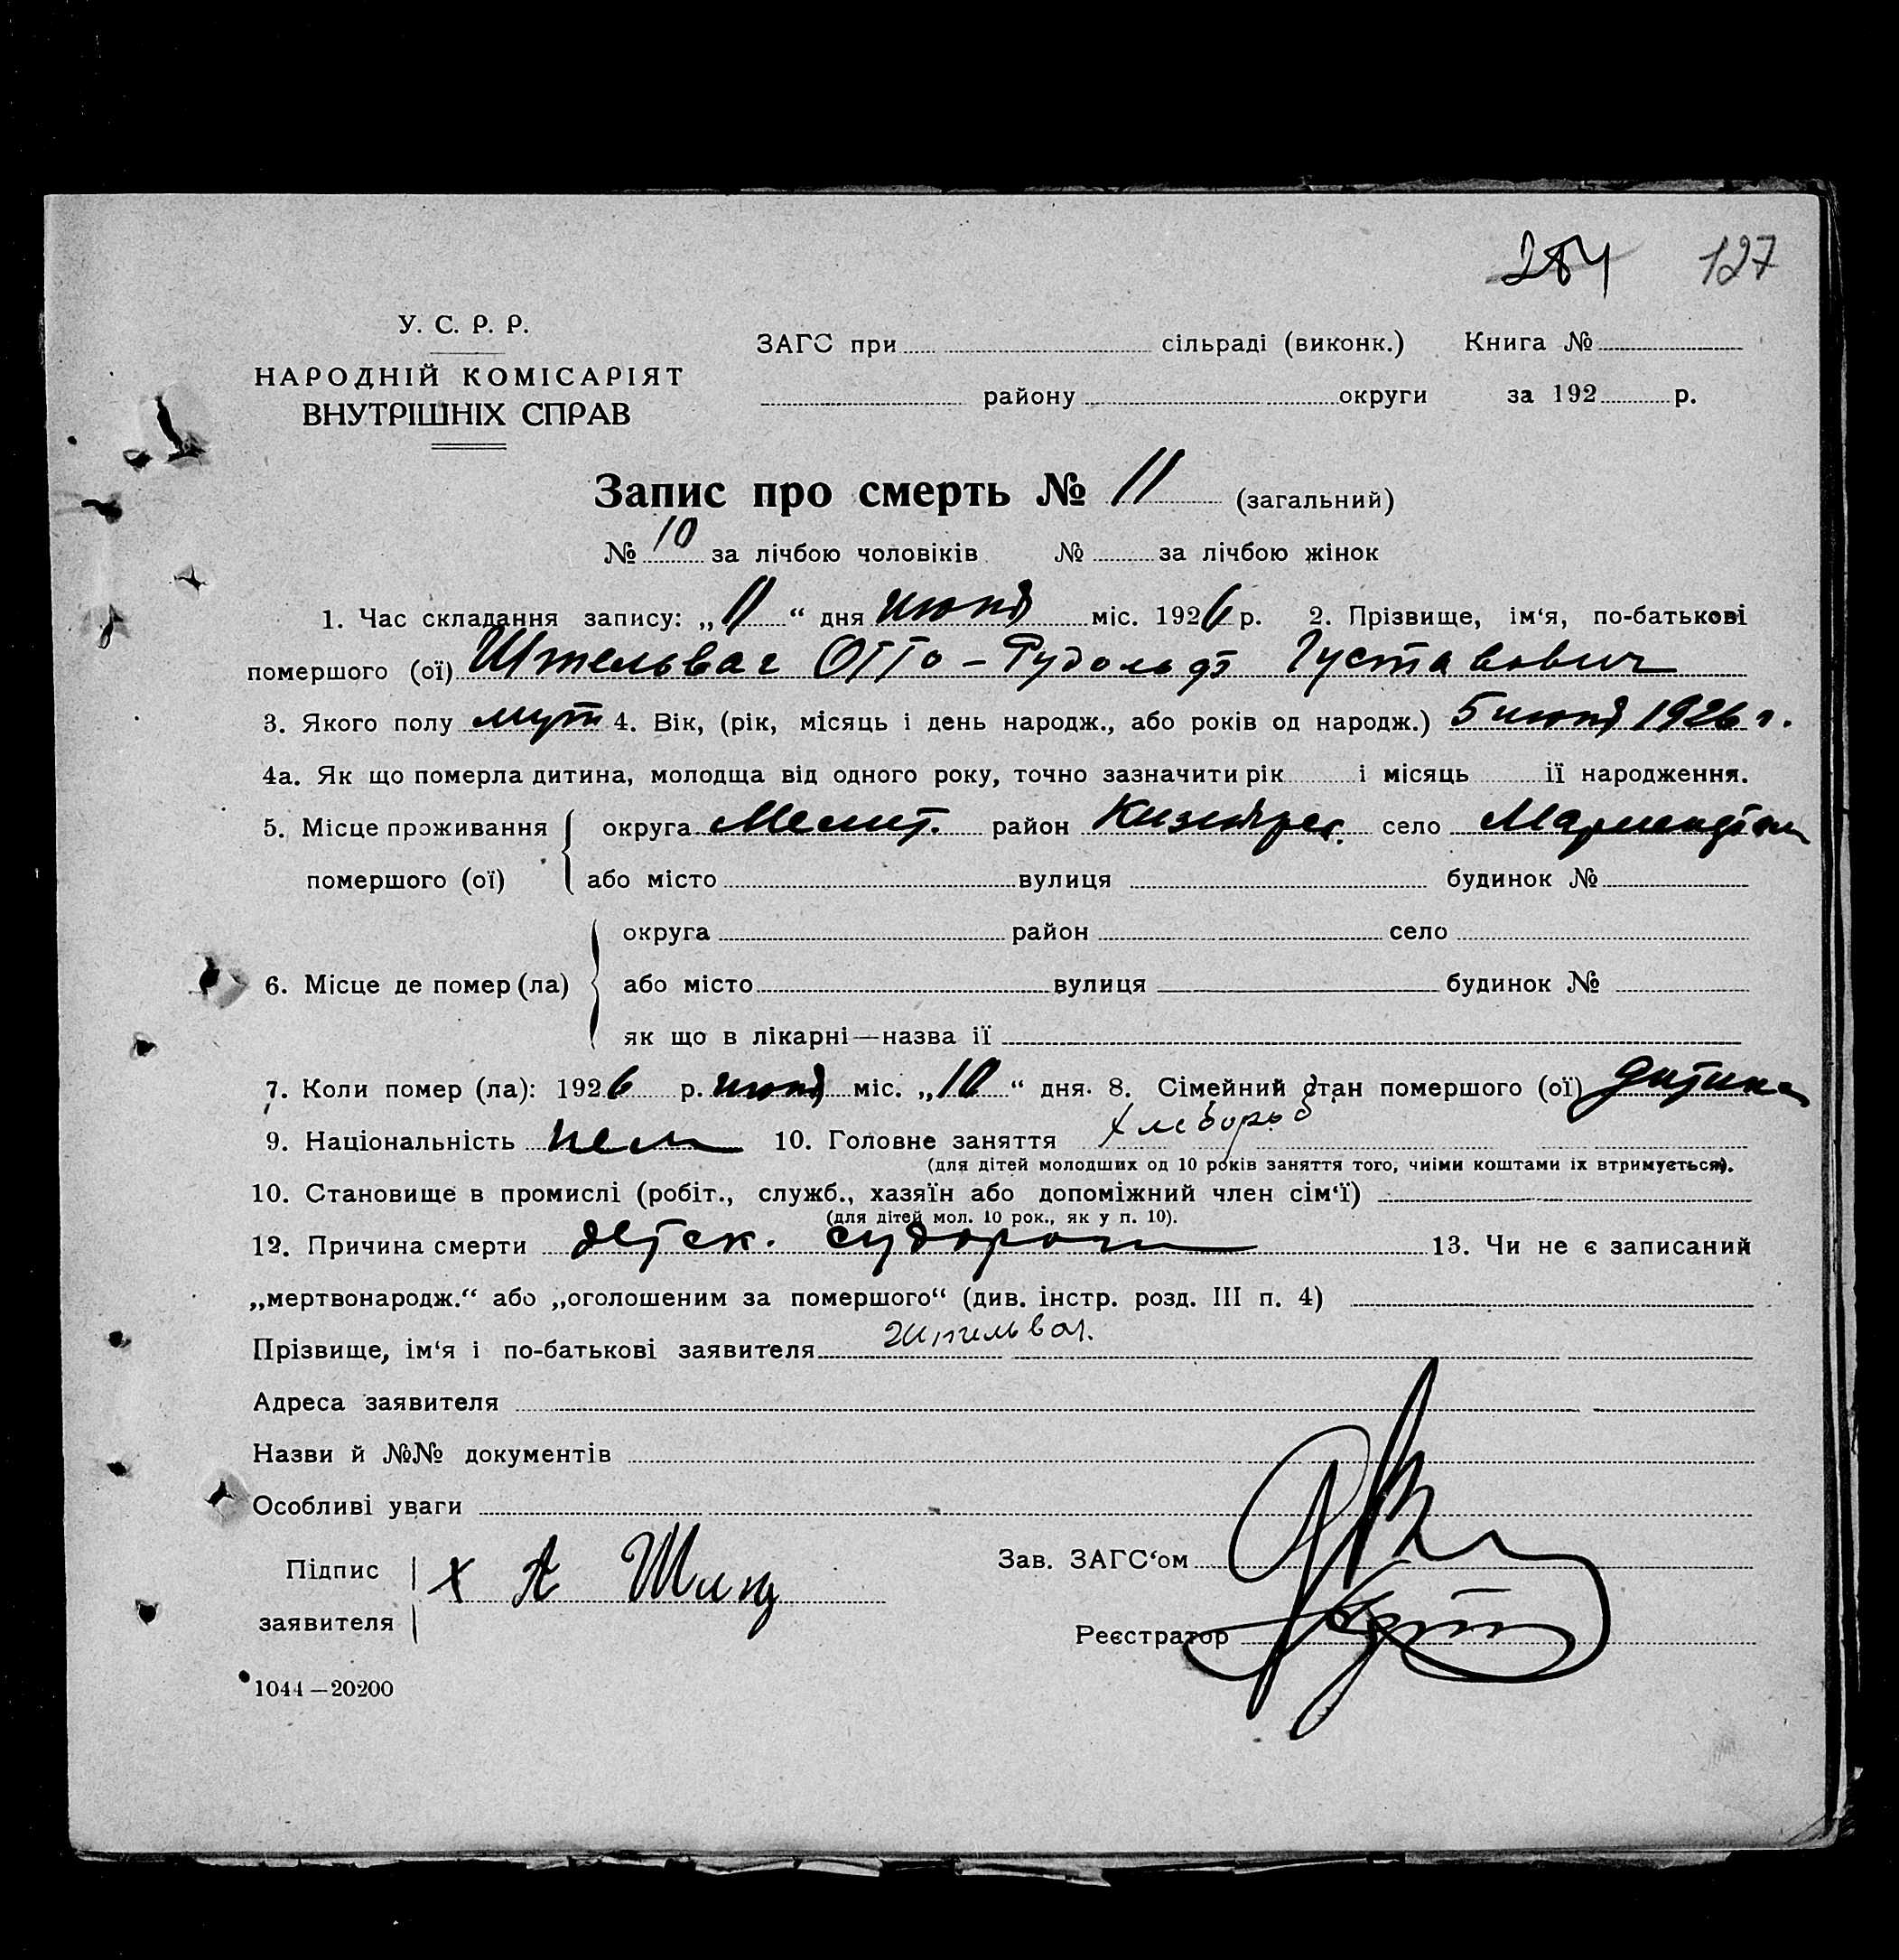 284 127
У. С. Р. Р.
НАРОДНІЙ КОМІСАРІЯТ
ВНУТРІШНІХ СПРАВ
ЗАГС при сільраді (виконк.) Книга №
району округи за 192 р.
Запис про смерть № 11 (загальний)
№ 10 за лічбою чоловіків № за лічбою жінок
1. Час складання запису: „11“ дня июня міс. 1926 р. 2. Прізвище, ім‘я, по-батькові
помершого (ої) Штельваг Отто-Рудольф Густавович
3. Якого полу муж 4. Вік, (рік, місяць і день народж., або років од народж.) 5 июня 1926 г.
4а. Як що померла дитина, молодща від одного року, точно зазначити рік і місяць її народження.
5. Місце проживання округа Мелит. район Кизиярск. село
помершого (ої) або місто вулиця будинок №
округа район село
6. Місце де помер (ла) або місто вулиця будинок №
як що в лікарні—назва її
7. Коли помер (ла): 1926 р. июня міс. „10“ дня. 8. Сімейний стан помершого (ої) дитина
9. Національність нем 10. Головне заняття хлебороб
(для дітей молодших од 10 років заняття того, чиїми коштами їх втримується).
10. Становище в промислі (робіт., служб., хазяїн або допоміжний член сім‘ї)
(для дітей мол. 10 рок., як у п. 10).
12. Причина смерти детск. судороги 13. Чи не є записаний
„мертвонародж.“ або „оголошеним за помершого“ (див. інстр. розд. III п. 4)
Прізвище, ім‘я і по-батькові заявителя Штельваг.
Адреса заявителя
Назви й №№ документів
Особливі уваги
Підпис
заявителя
х А
Зав. ЗАГС‘ом
Реєстратор
1044—20200